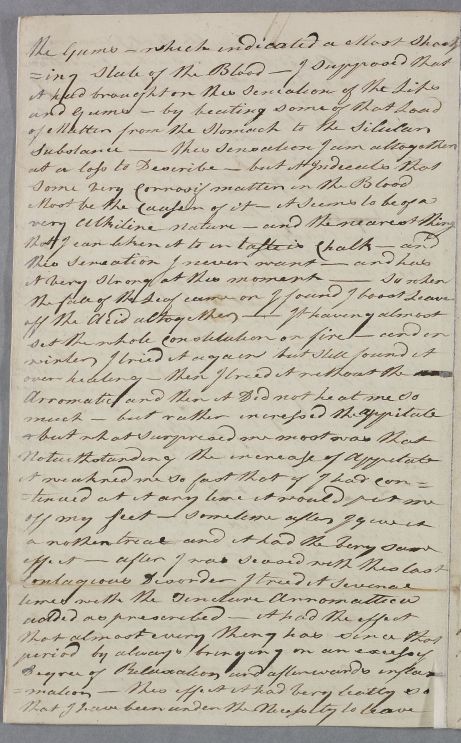 the Gums – which indicated a Most Shock
=ing State of the Blood – I supposed that
it had brought on this Sensation of the Lips
and Gums – by heating some of that Load
of Matter from the Stomach to the Silular
Substance – this sensation I am altogether
at a loss to Describe – but it Indecates that
Some very Corrosif matter in the Blood
Most be the Causem of it – it Seems to be of a
very Alkiline nature – and the nearest thing
that I can liken it to in taste is Chalk – and
this sensation I never want – and has
it very Strong at this moment – So when
the fall of the Leaf came on I found I boost Leave
off the Acid altogether – It having almost
set the whole Constitution on fire – and in
winter I tried it again but still found it
over heating – then I tried it without the
Arromatic and then it Did not heat me so
much – but rather incressed the appitate
but what Surprised me most was that
Notwithstanding the increase of Appetate
it weakned me so fast that if I had con=
=tinued at it any time it would put me
off my feet – sometime after I give it
a nother trial and it had the very same
effect – after I was seased with this last
Contagious Disorder I tried it Several
times with the Tincture Arromattica
added as prescribed – it had the effect
that almost every thing has since that
period by always bringing on an excessif
Degree of Relaxation and afterwards infla=
=mation – this effect it had very leatly so
that I have been under the Necessity to leave